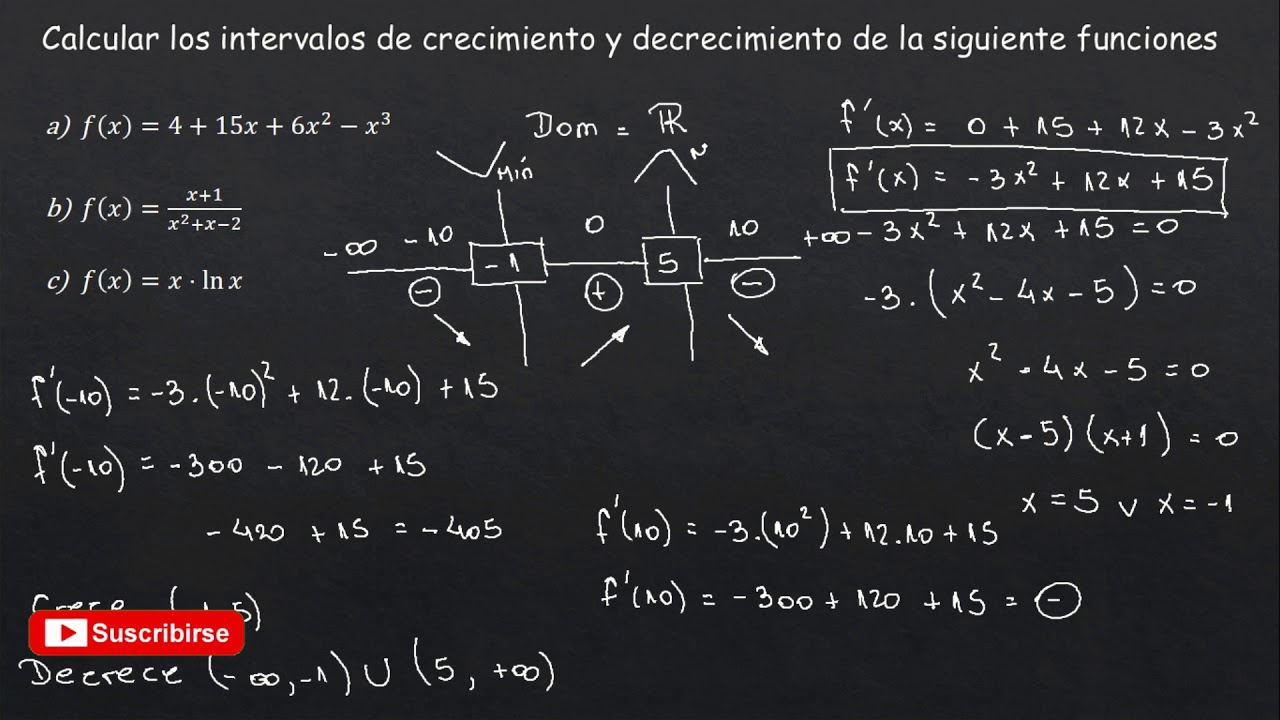 Calcular los intervalos de crecimiento y decrecimiento de la siguiente funciones
a) f(x) = 4 + 15x + 6x² − x³
b) f(x) = x+1 / x²+x−2
c) f(x) = x · ln x
Dom = ℝ
Mín
-∞ -10 0 10 +∞
-1 5
- + -
f'(x) = 0 + 15 + 12x - 3x²
f'(x) = -3x² + 12x + 15
-3x² + 12x + 15 = 0
-3.(x² - 4x - 5) = 0
x² - 4x - 5 = 0
(x-5)(x+1) = 0
x = 5 ∨ x = -1
f'(-10) = -3.(-10)² + 12.(-10) + 15
f'(-10) = -300 - 120 + 15
- 420 + 15 = - 405
f'(10) = -3.(10²) + 12.10 + 15
f'(10) = -300 + 120 + 15 = -
5)
Suscribirse
Decrece (-∞,-1) ∪ (5, +∞)